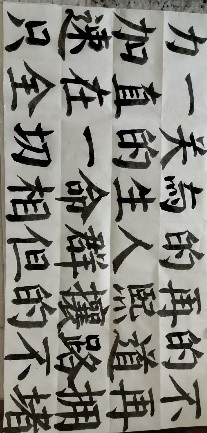 不再拥堵
的道路不
再熙攘的
的人群但
為生命相
关的一切
一直在全
力加速只